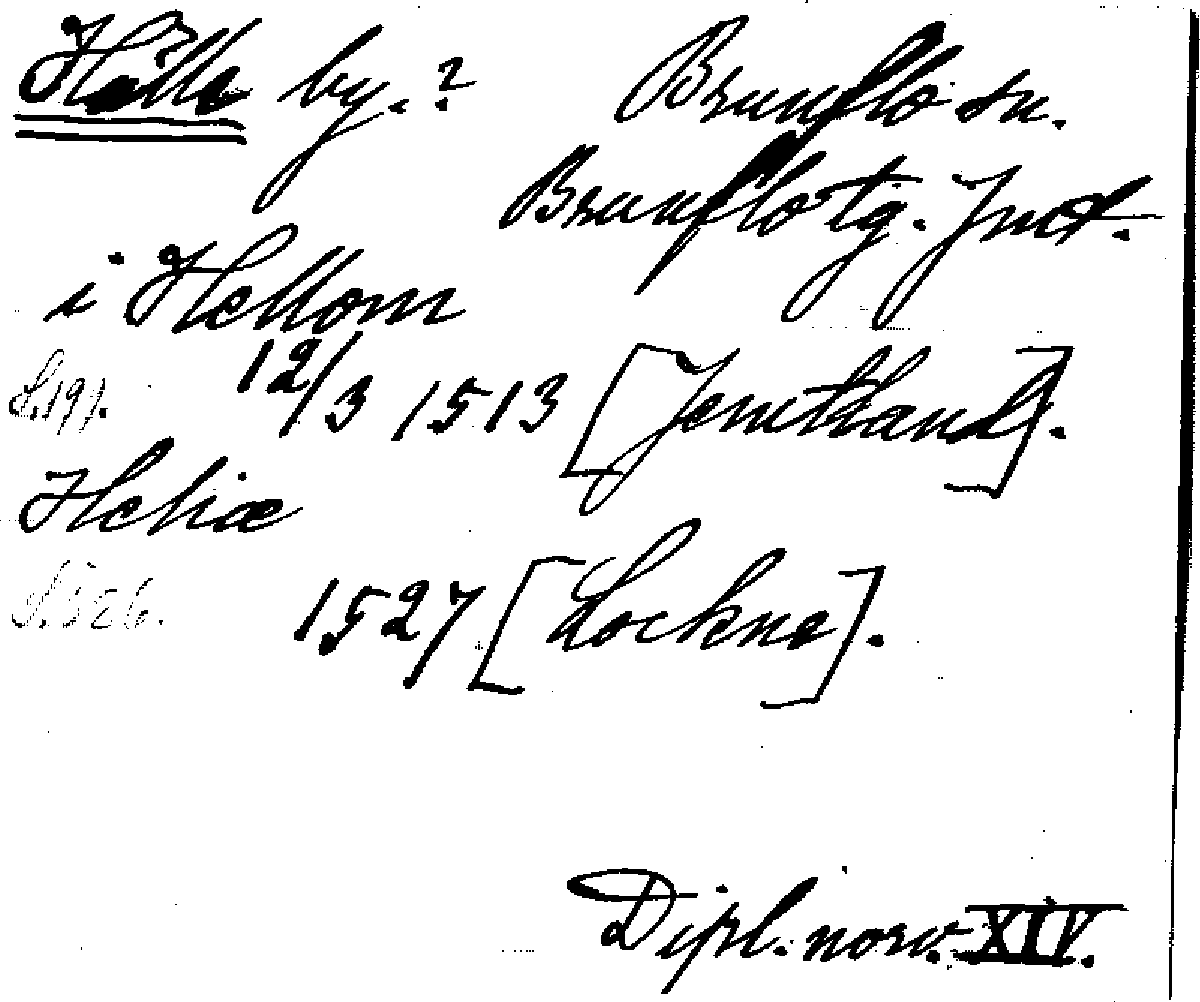 Hälle by.? Brunflo sn.
Brunflo tg. Jmt.
i Hellom
S.197. 12/3 1513 [Jemtland].
Heliæ
S.526. 1527 [Lockne].
Dipl. norv. XIV.